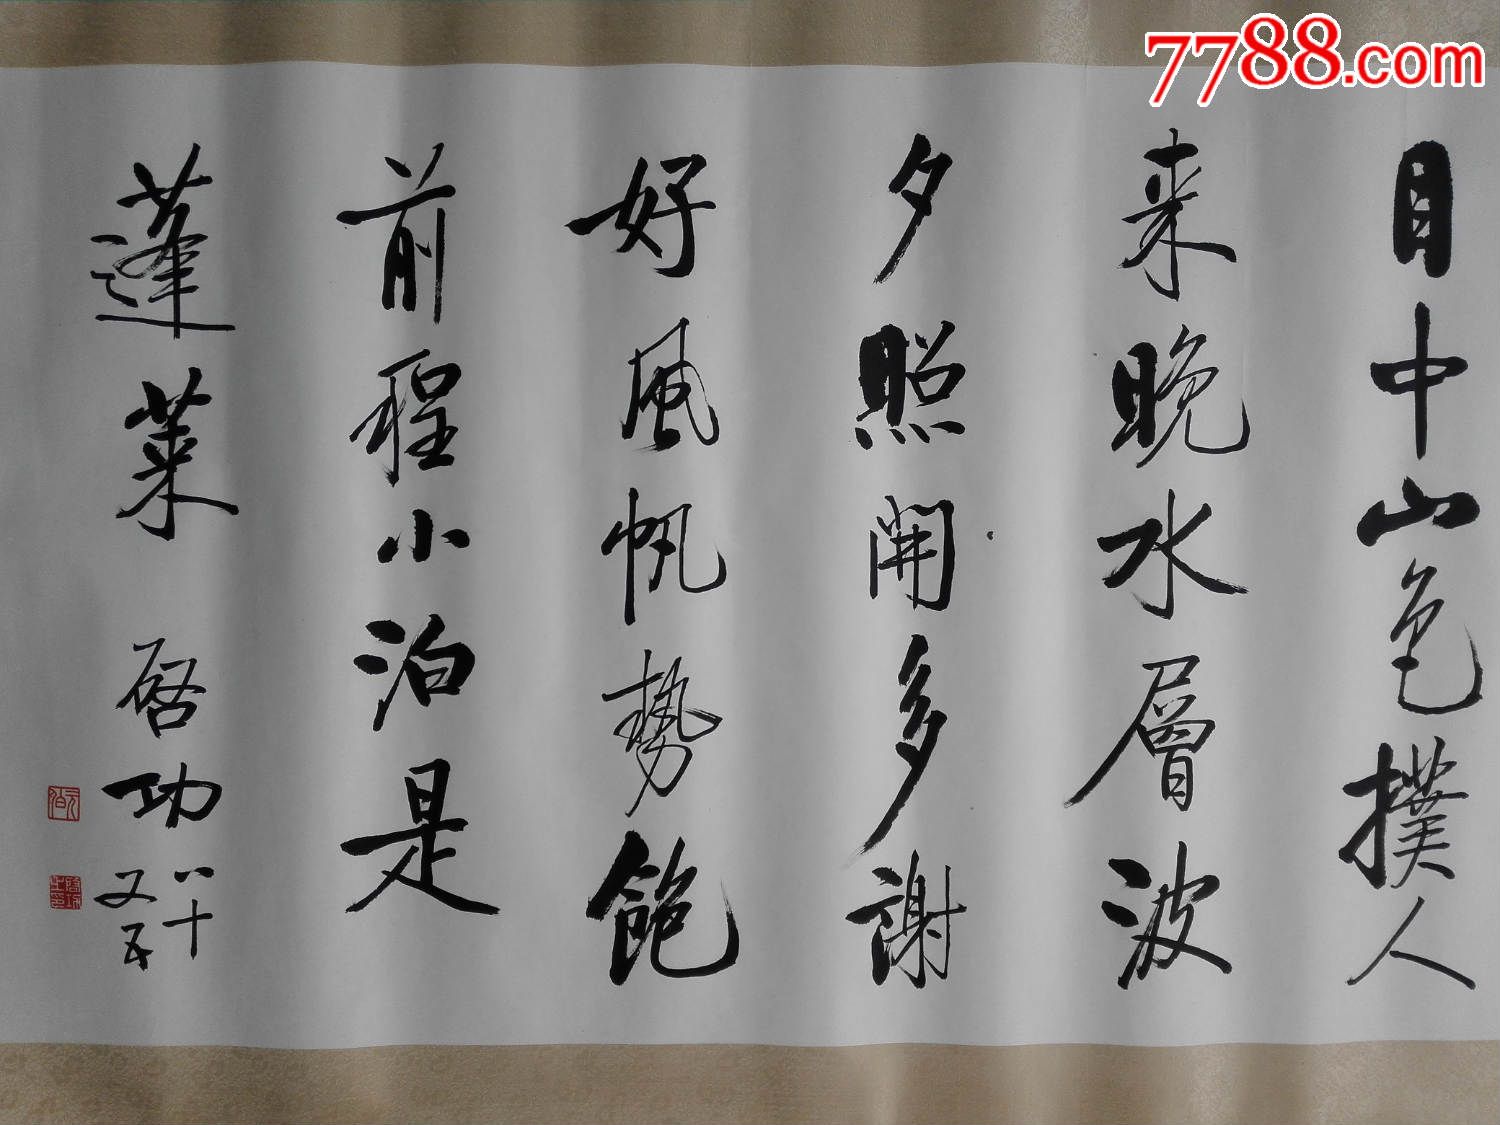 7788.com
目中山色撲人
来晚水層波
夕照開多謝
好風帆勢飽
前程小泊是
蓬萊 啓功
八十
又五
元伯
啓功之印